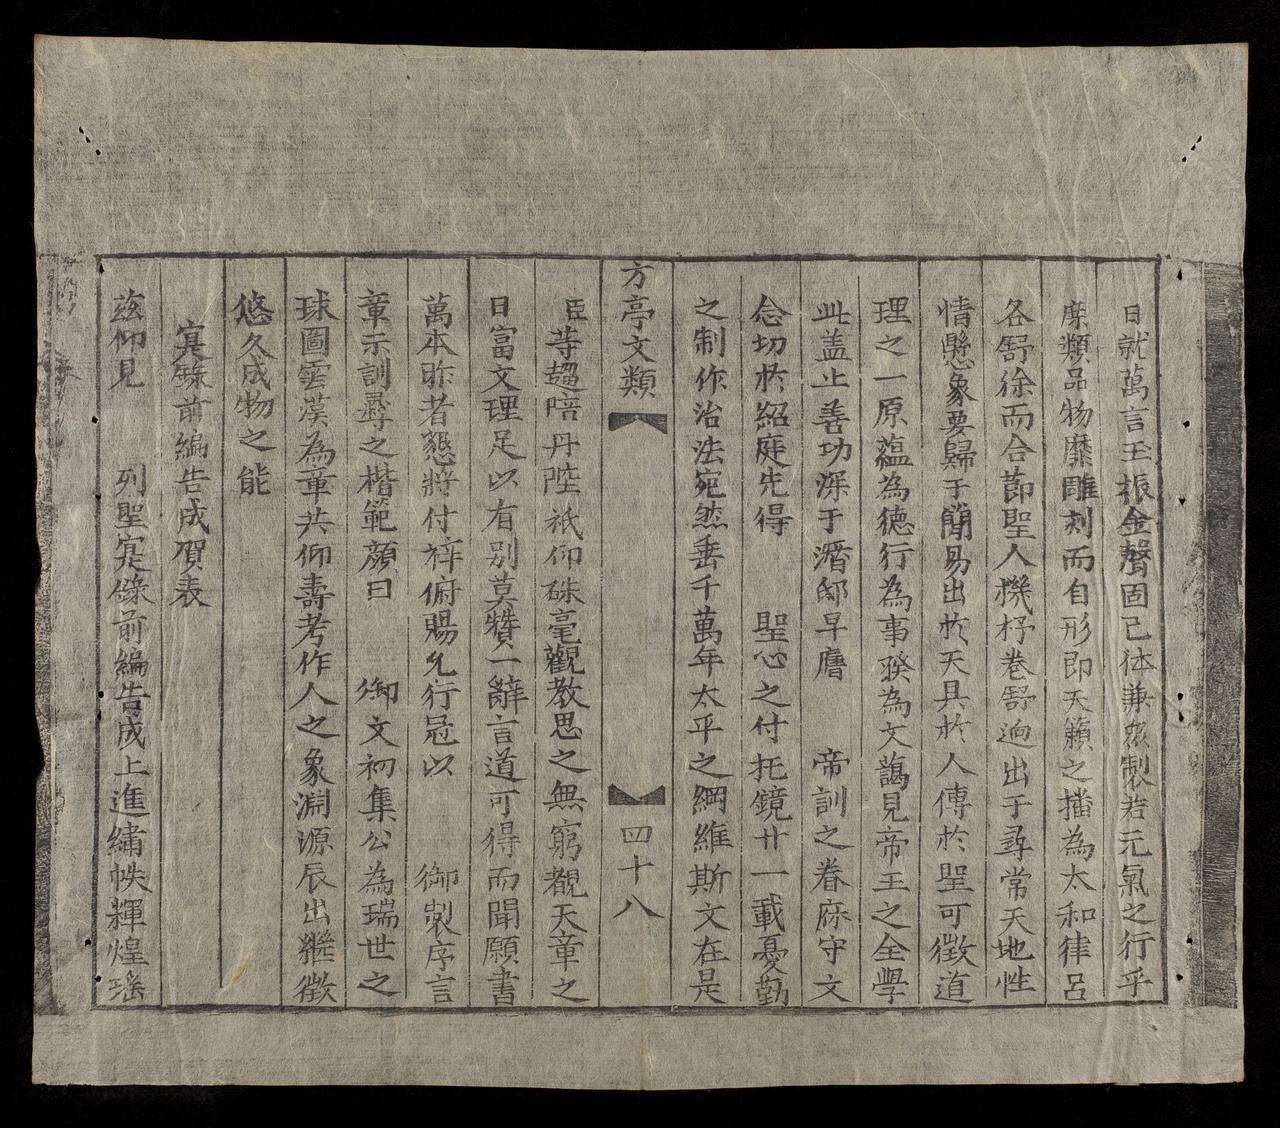 日就萬言玉振金聲固已体兼衆製若元氣之行乎
庶類品物靡雕刻而自形即天籟之播為太和律呂
各舒徐而合節聖人機杼卷舒逈出于尋常天地性
情懸象要歸于簡易出於天具於人傳於聖可徵道
理之一原蘊為德行為事發為文藹見帝王之全學
此盖止善功深于潛邸早膺　帝訓之眷庥守文
念切於紹庭先得　聖心之付托鏡廿一載憂勤
之制作治法宛然垂千萬年太平之綱維斯文在是
方亭文類　四十八
臣等趨陪丹陛祇仰硃毫觀教思之無窮覩天章之
日富文理足以有別莫贊一辭言道可得而聞願書
萬本昨者懇將付梓俯賜允行冠以　御製序言
章示訓尋之楷範顏曰　御文初集公為瑞世之
球圖雲漢為章共仰壽考作人之象淵源辰出継徵
悠久成物之能
寔錄前編告成賀表
茲仰見　列聖寔錄前編告成上進繡帙輝煌瑤